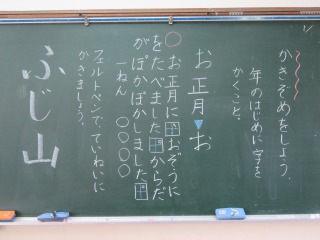 かきぞめをしよう。
年のはじめに字を
かくこと。
お正月▼お
○お正月に田おぞうに
をたべました田からだ
がぽかぽかしました田
一ねん ○○○○
フェルトペンでていねいに
かきましょう。
ふじ山